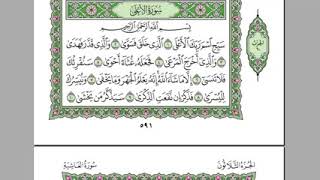 سورة الأعلى
بسم الله الرحمن الرحيم
سبح اسم ربك الأعلى ١ الذي خلق فسوى ٢ والذي قدر فهدى
٣ والذي أخرج المرعى ٤ فجعله غثاء أحوى ٥ سنقرئك
فلا تنسى ٦ إلا ما شاء الله إنه يعلم الجهر وما يخفى ٧ ونيسرك
لليسرى ٨ فذكر إن نفعت الذكرى ٩ سيذكر من يخشى
٥٩١
الجزء الثلاثون
سورة الغاشية